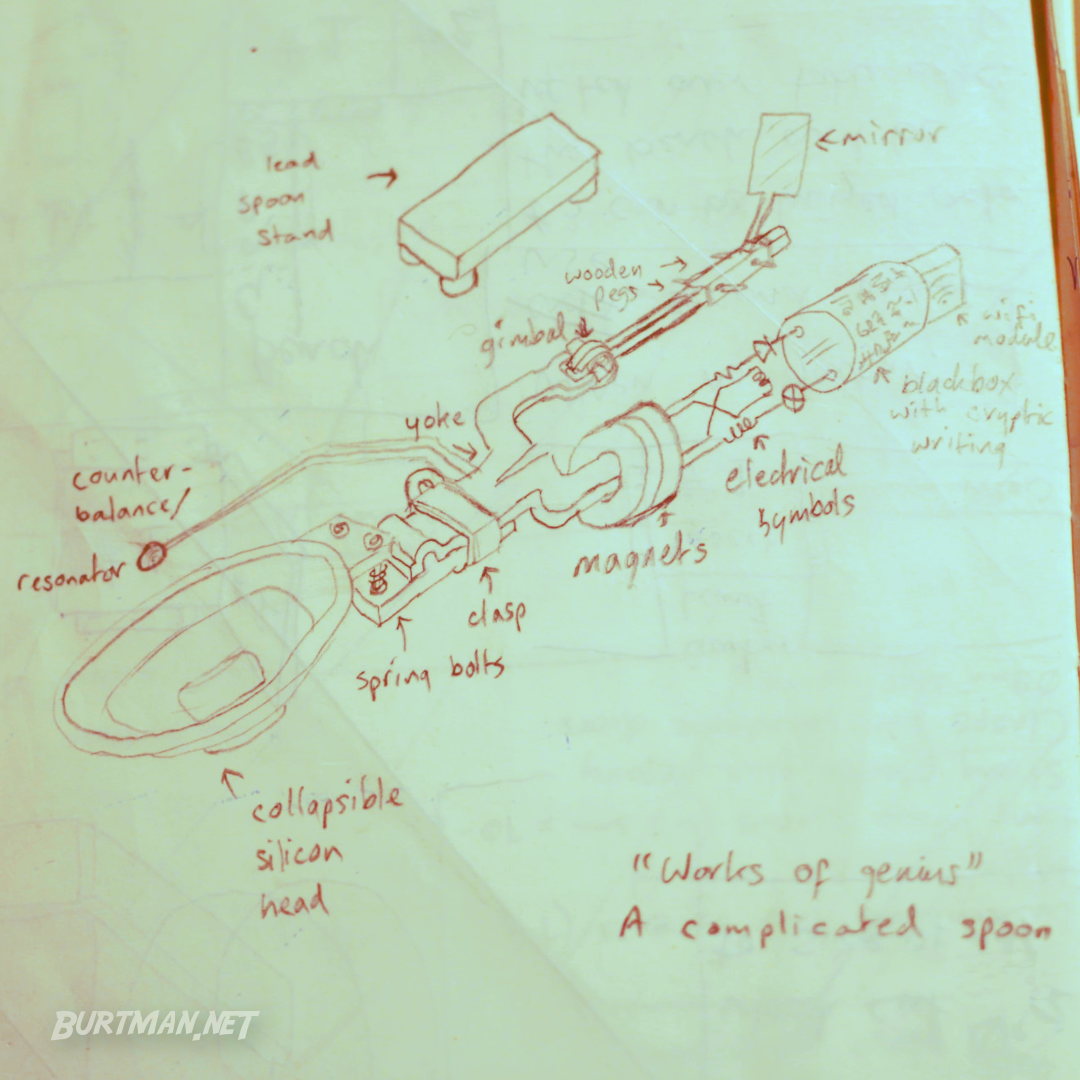 lead
spoon
stand
mirror
wooden
pegs
gimbal
wifi
module
blackbox
with cryptic
writing
yoke
electrical
symbols
counter-
balance/
resonator
magnets
clasp
spring bolts
collapsible
silicon
head
"Works of genius"
A complicated spoon
BURTMAN.NET